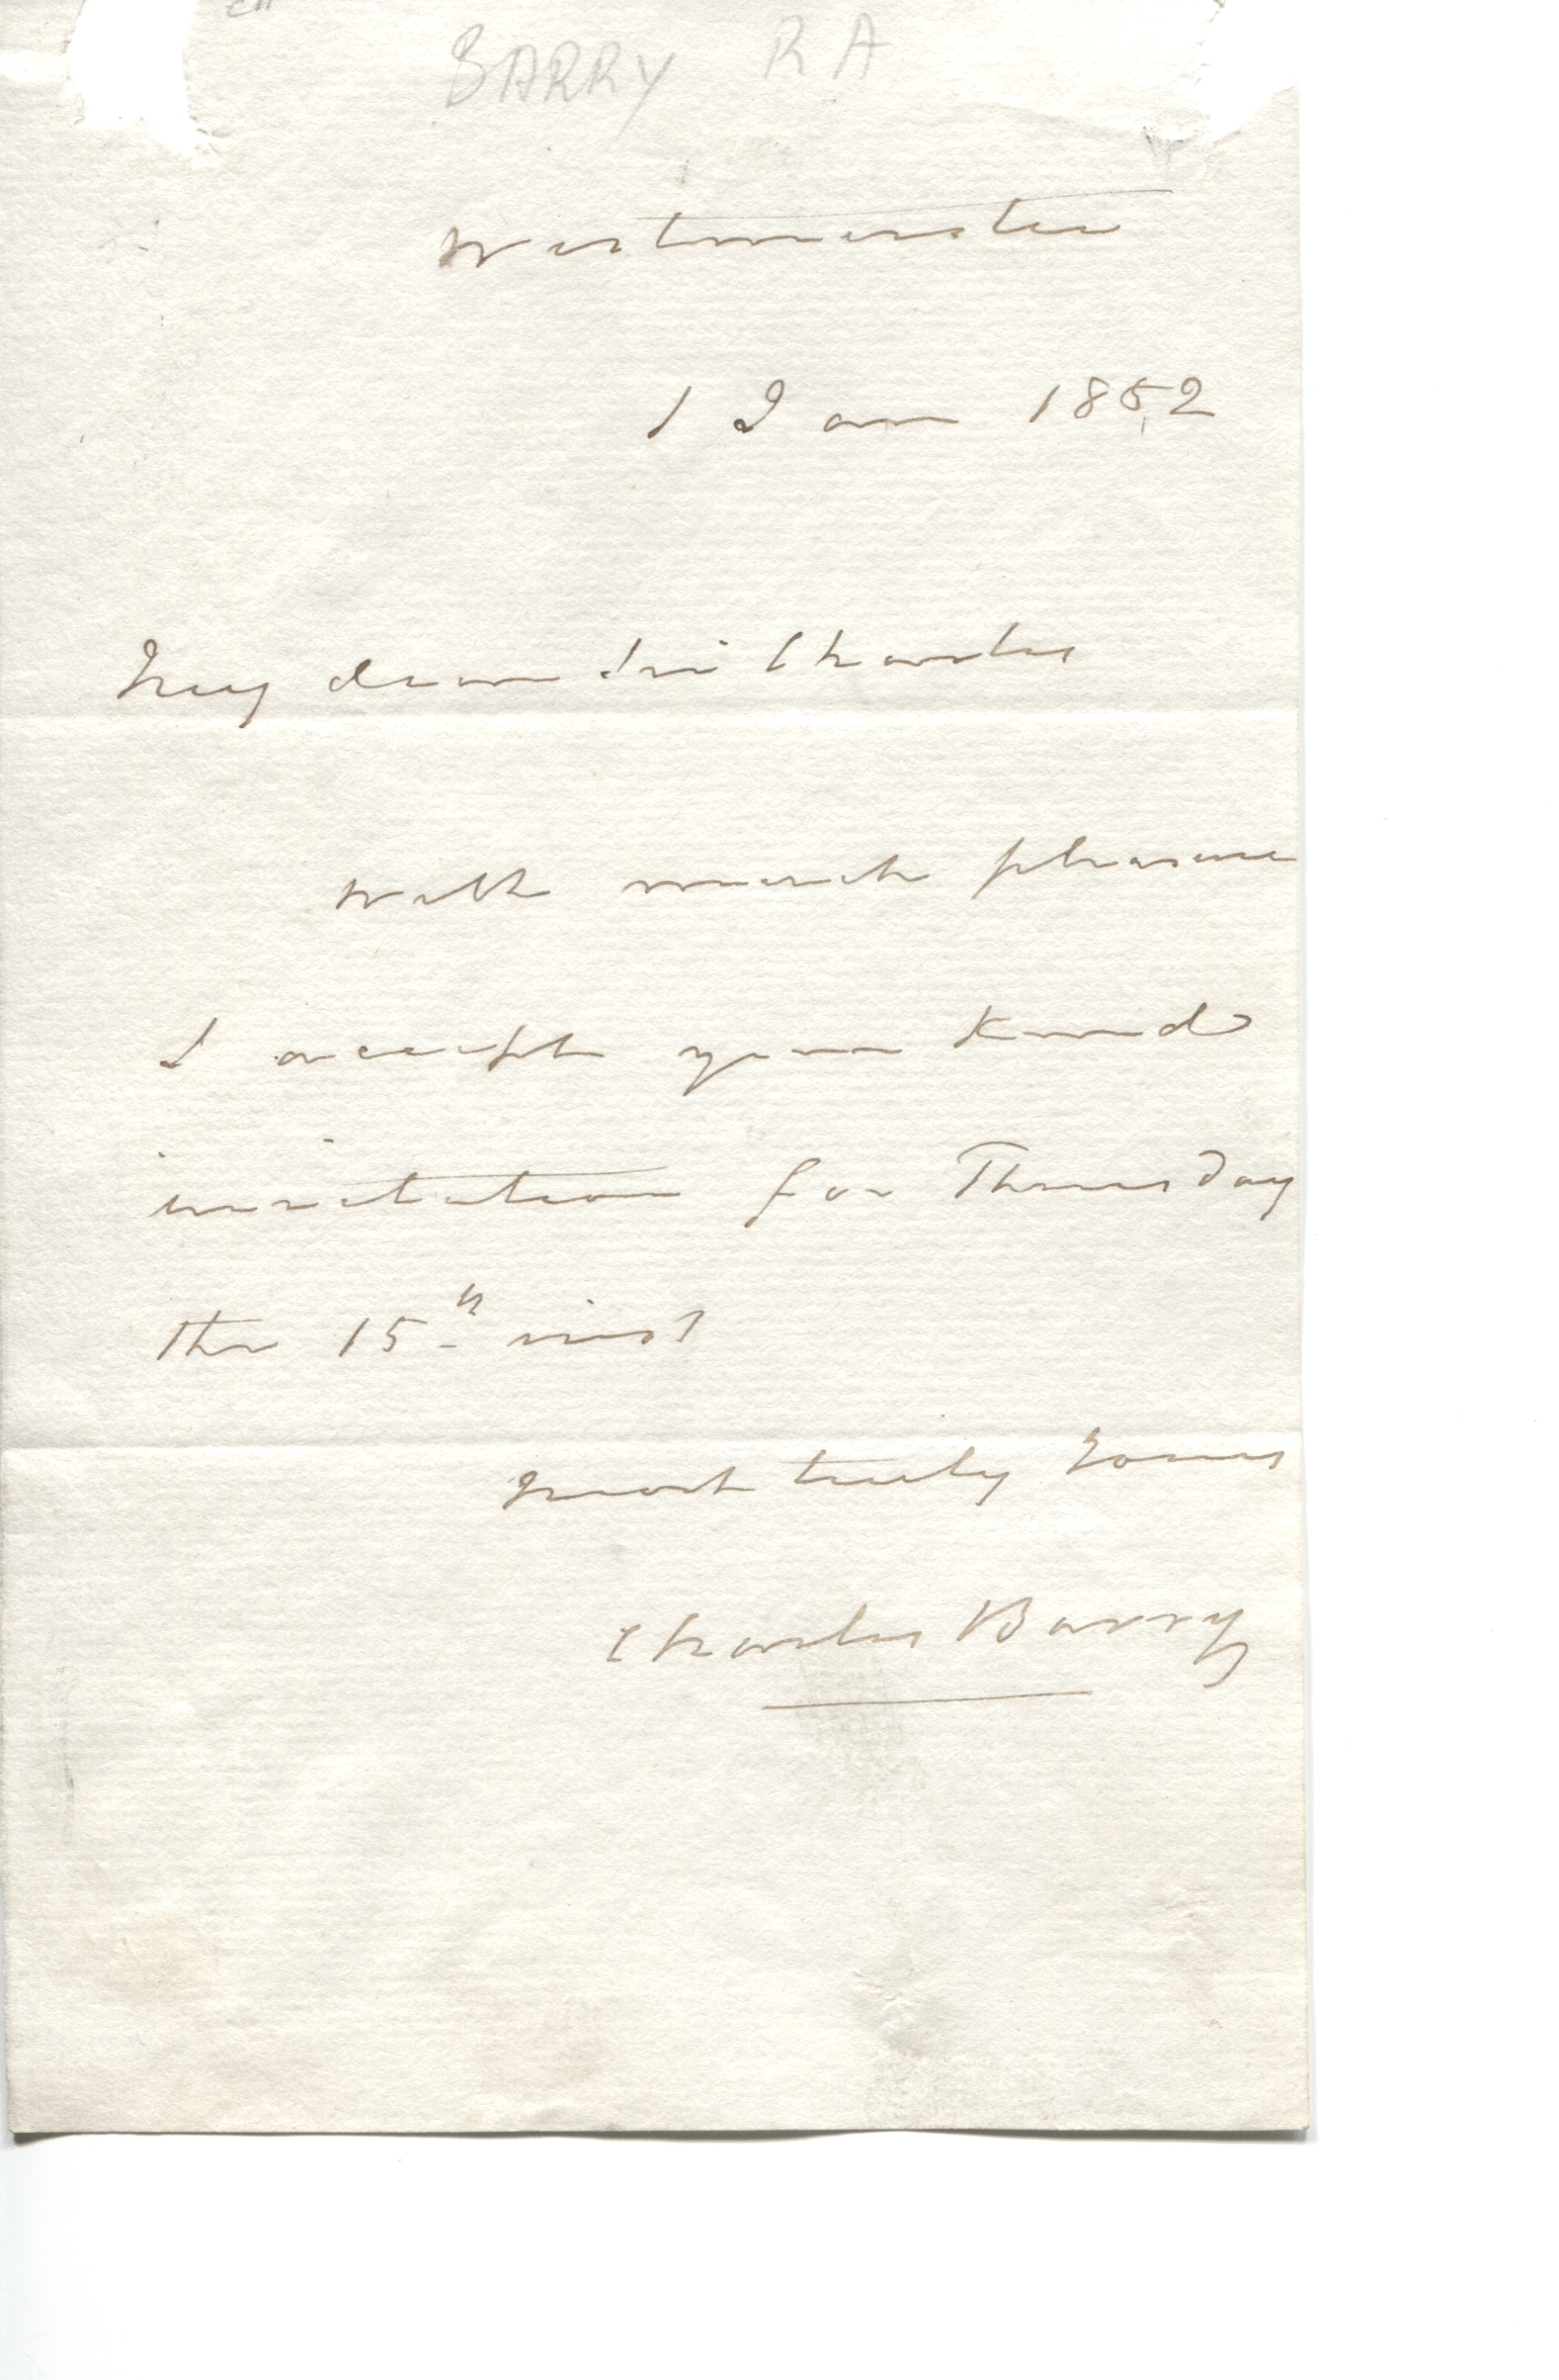 BARRY RA
Westminster
1 Jan 1852
My dear Sir Charles
With much pleasure
I accept your kind
invitation for Thursday
the 15th inst
Most truly Yours
Charles Barry